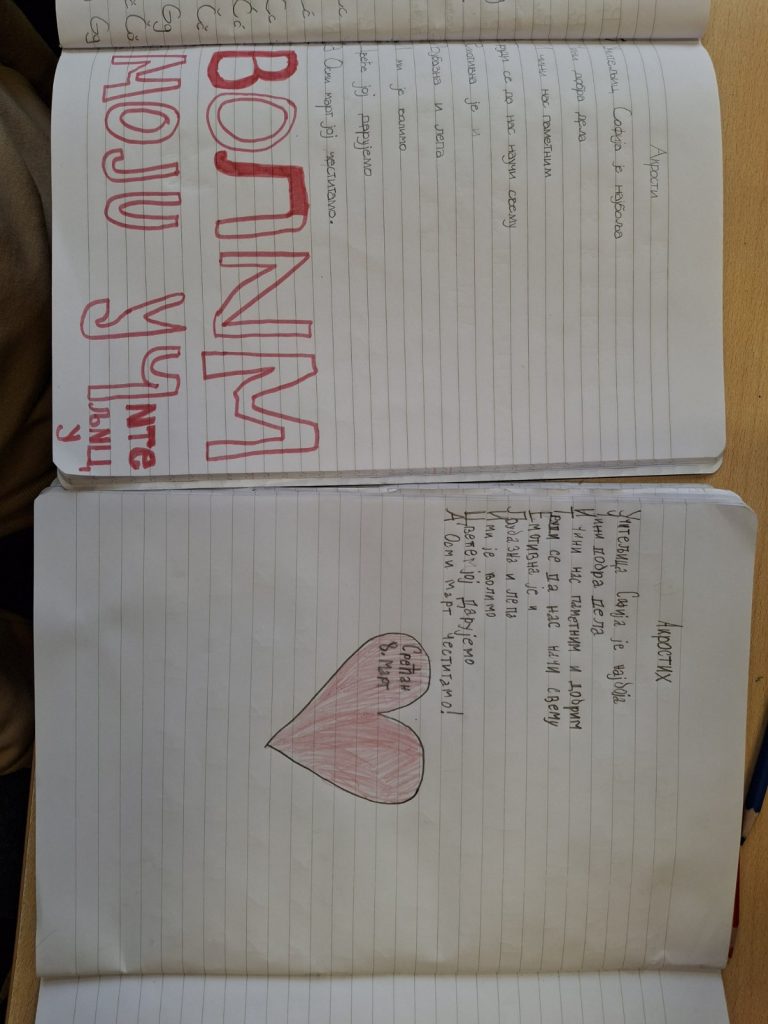 Акрости
читељиц Софија је најбоља
ини добра дела
чини нас паметним
руди се да нас научи свему
мотивна је и
убазна и лепа
ми је волимо
веће јој дарујемо
Осми март јој честитамо.
ВОЛИМ
МОЈУ УЧИТЕ
ЉИЦ
У
Акростих
Учитељица је најбоља
Чини добра дела
И чини нас паметним и добрим
се да нас начи свему
Емотивна је и
Љубазна и лепа
И ми је волимо
Цвеће јој дарујемо
А Осми март честитамо!
Срећан
8. Март